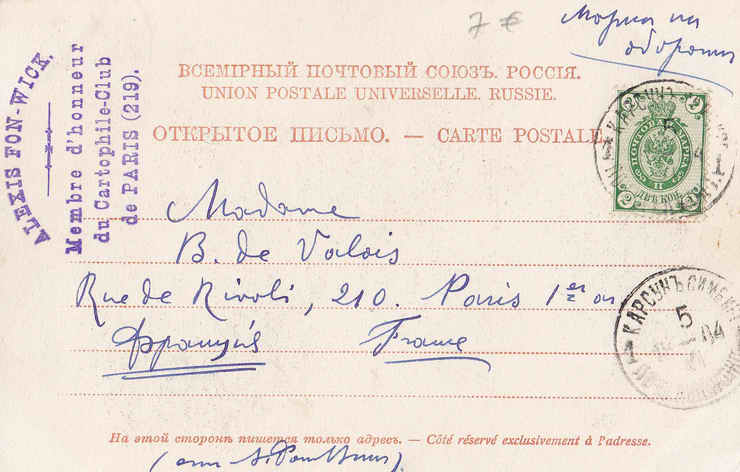 7 €
Марка на
обороте
ALEXIS FON-WICK.
Membre d'honneur
du Cartophile-Club
de PARIS (219).
ВСЕМІРНЫЙ ПОЧТОВЫЙ СОЮЗЪ. РОССІЯ.
UNION POSTALE UNIVERSELLE. RUSSIE.
ОТКРЫТОЕ ПИСЬМО. — CARTE POSTALE.
КАРСУНЪ
5
2 2
ПОЧТОВАЯ МАРКА
II
ДВѢ КОП.
2 2
Madame
B. de Valois
Rue de Rivoli, 210. Paris 1er ar
Франція France
КАРСУНЪ СИМБИР
5
04
На этой сторонѣ пишется только адресъ. — Côté réservé exclusivement à l'adresse.